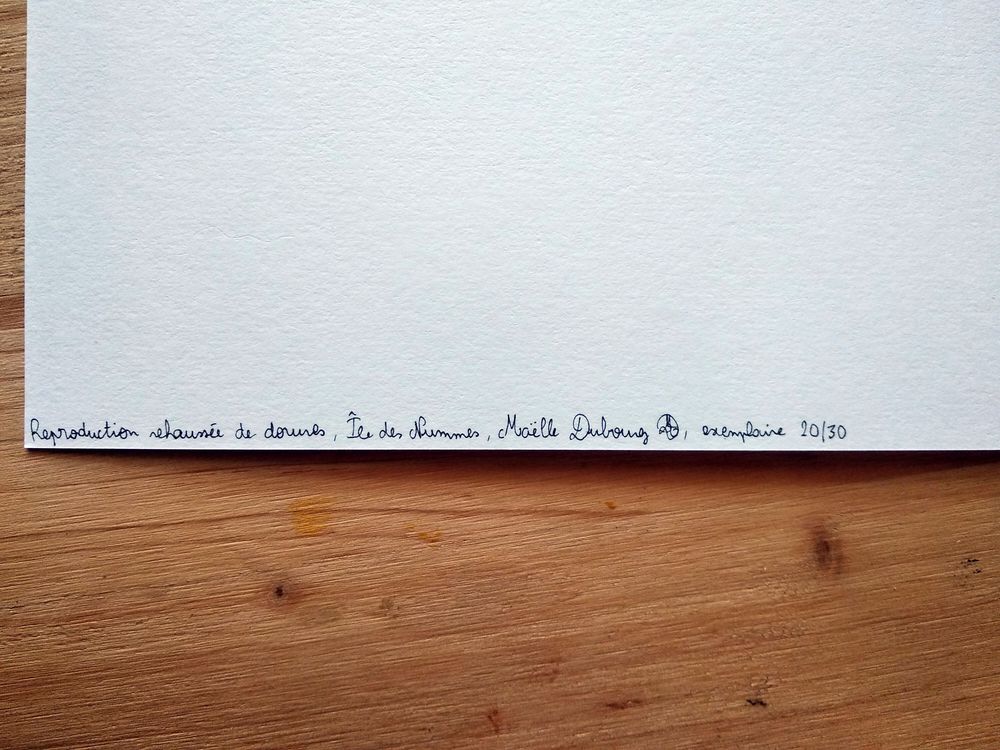 Reproduction rehaussée de dorures, Île des Nummes, Maëlle Dubourg, exemplaire 20/30